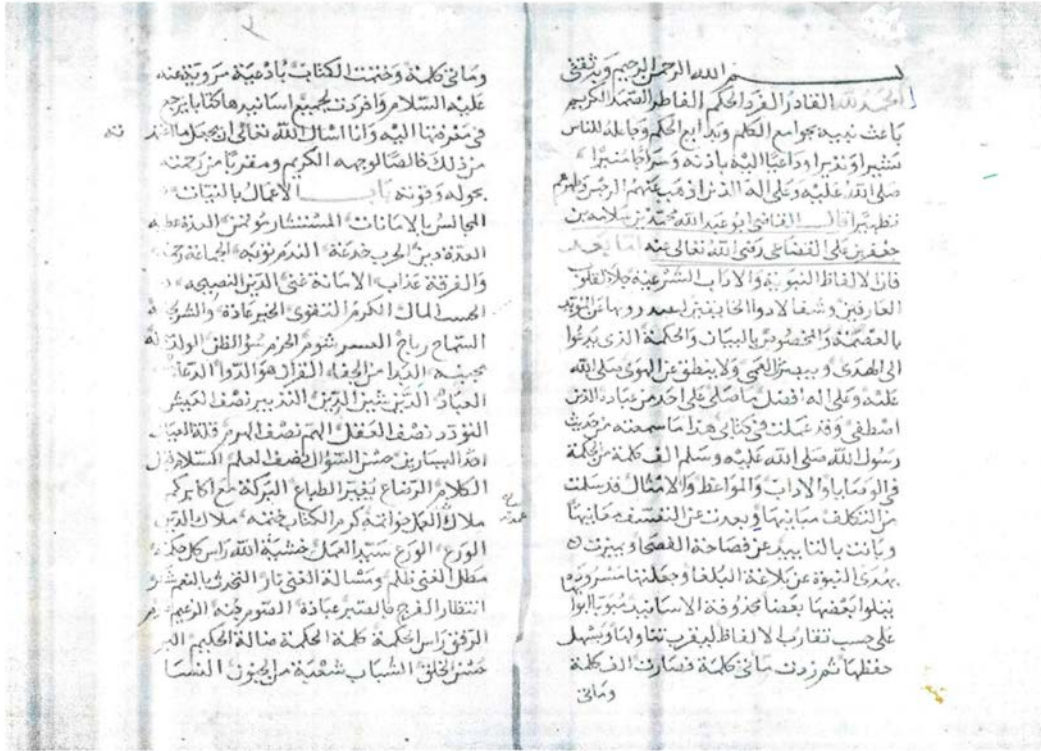 بسم الله الرحمن الرحيم وبه ثقتي
الحمد لله القادر الفرد الحكم الفاطر الصمد الكريم
باعث نبيه بجوامع الكلم وبدايع الحكم وجاعله للناس
بشيرا ونذيرا وداعيا اليه باذنه وسراجا منيرا
صلى الله عليه وعلى اله الذين اذهب عنهم الرجس وطهرهم
تطهيرا قال القاضي ابو عبد الله محمد بن سلامه بن
جعفر بن علي القضاعي رضي الله تعالى عنه اما بعد
فان الالفاظ النبوية والاداب الشرعية جلاء لقلوب
العارفين وشفا لادوا الخايفين لصدورها عن المويد
بالعصمة والمخصوص بالبيان والحكمة الذي يدعوا
الى الهدى ويبصر العمى ولا ينطق عن الهوى صلى الله
عليه وعلى اله افضل ما صلى على احد من عباده الذين
اصطفى وقد جمعت في كتابي هذا ما سمعته من حديث
رسول الله صلى الله عليه وسلم الف كلمة من الحكمة
في الوصايا والاداب والمواعظ والامثال قد سلمت
من التكلف مبانيها وبعدت عن التعسف معانيها
وبانت بالتاييد عن فصاحة الفصحا وتميزت
بهدى النبوة عن بلاغة البلغا وجعلتها مسرودة
يتلوا بعضها بعضا محذوفة الاسانيد مبوبة ابوابا
على حسب تقارب الالفاظ ليقرب تناولها ويسهل
حفظها ثم زدت مأتي كلمة فصارت الف كلمة
ومأتي
ومأتي كلمة وختمت الكتاب بادعية مروية عنه
عليه السلام وافردت لجميع اسانيدها كتابا يرجع
في معرفتها اليه وانا اسال الله تعالى ان يجعل ما
من ذلك خالصا لوجهه الكريم ومقربا من رحمته
بحوله وقوته باب الاعمال بالنيات
المجالس بالامانات المستشار موتمن العدة عطية
العدة دين الحرب خدعة الندم توبة الجماعة رحمة
والفرقة عذاب الامانة غنى الدين النصيحة
الحسب المال الكرم التقوى الخير عادة والشر
السماح رباح العسر شوم الحزم سو الظن الولد
مجبنة البذا من الجفا القران هو الدوا الدعا
العبادة الدين شين الدين التدبير نصف العيش
التودد نصف العقل الهم نصف الهرم قلة العيال
احد اليسارين حسن السوال نصف العلم السلام قبل
الكلام الرضاع يغير الطباع البركة مع اكابركم
ملاك العمل خواتمه كرم الكتاب ختمه ملاك الدين
الورع الورع سيد العمل خشية الله راس كل حكمة
مطل الغني ظلم ومسالة الغني نار التحدث بالنعم شكر
انتظار الفرج بالصبر عبادة الصوم جنة الزعيم
الرفق راس الحكمة كلمة الحكمة ضالة الحكيم البر
حسن الخلق الشباب شعبة من الجنون النسا